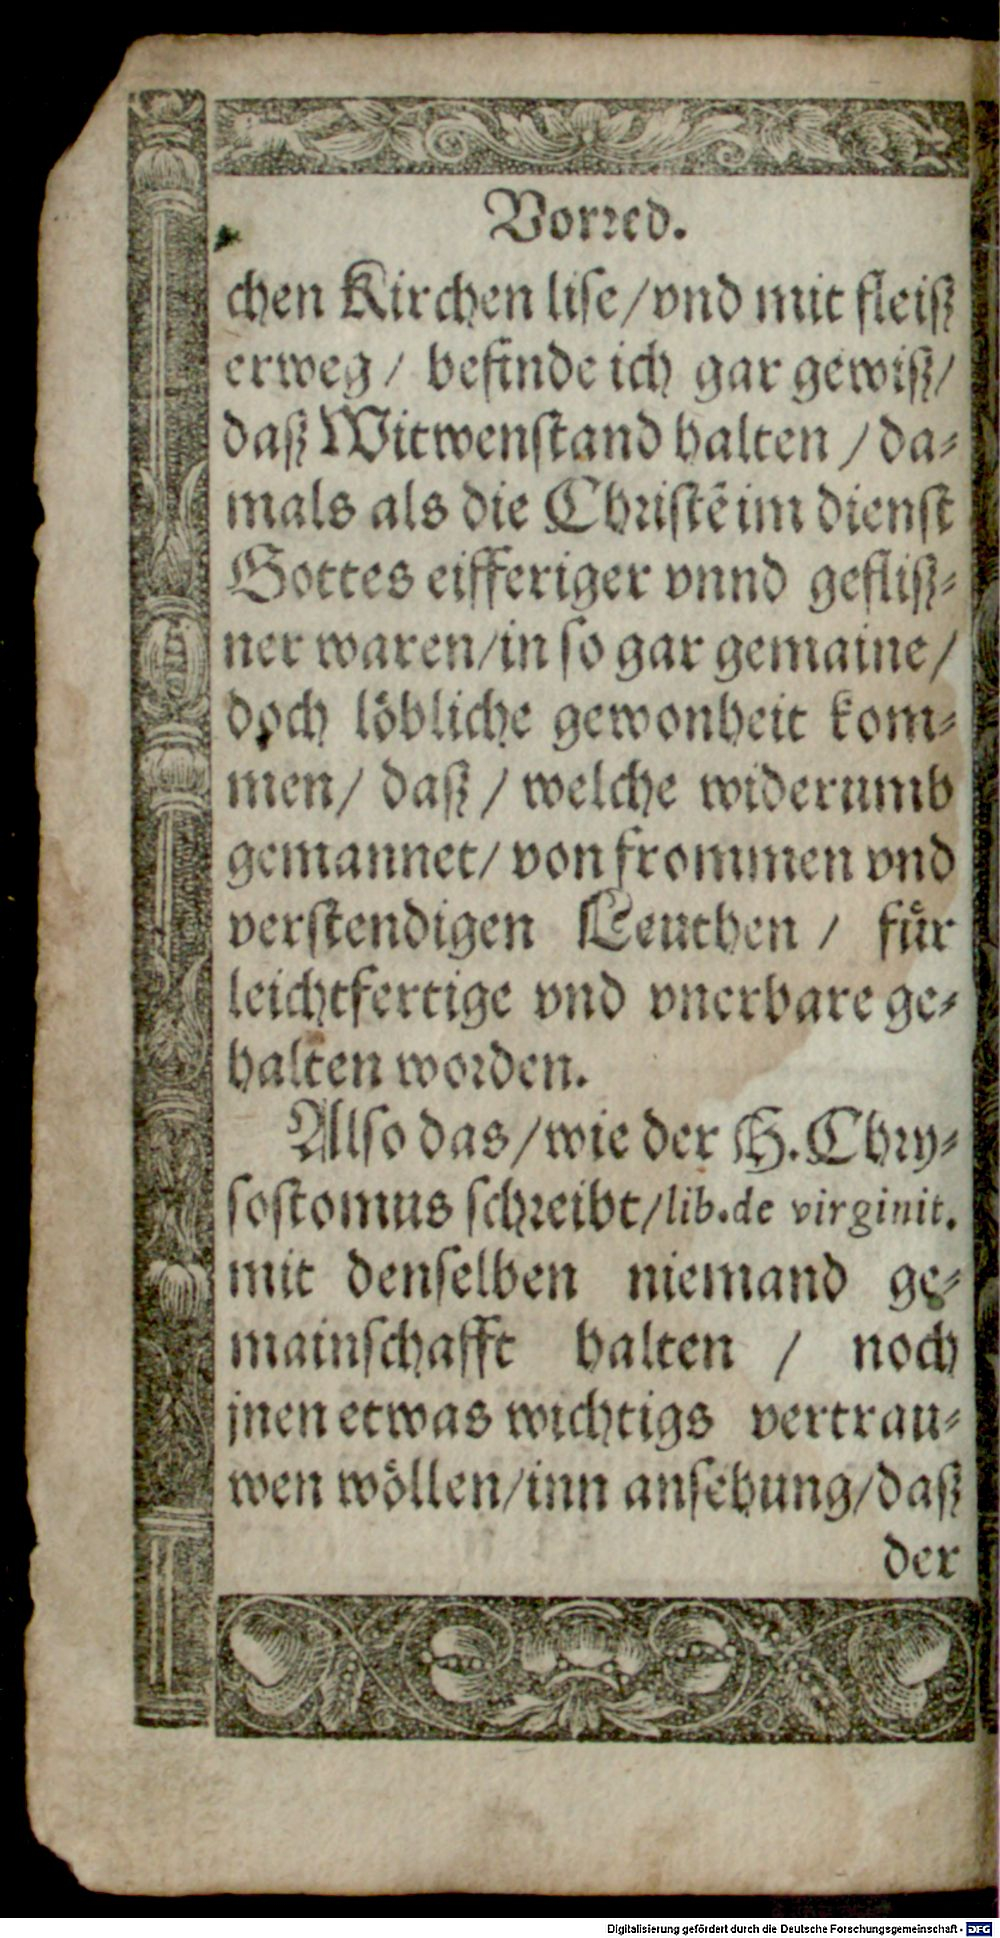 Vorred.
chen Kirchen lise/vnd mit fleiß
erweg/ befinde ich gar gewiß/
daß Witwenstand halten / da-
mals als die Christē im dienst
Gottes eifferiger vnnd gefliß-
ner waren/in so gar gemaine/
doch löbliche gewonheit kom-
men/ daß / welche widerumb
gemannet/ von frommen vnd
verstendigen Leuthen / für
leichtfertige vnd vnerbare ge-
halten worden.
Also das/wie der H. Chry-
sostomus schreibt/lib.de virginit.
mit denselben niemand ge-
mainschafft halten / noch
jnen etwas wichtigs vertrau-
wen wöllen/inn ansehung/daß
der
Digitalisierung gefördert durch die Deutsche Forschungsgemeinschaft - DFG